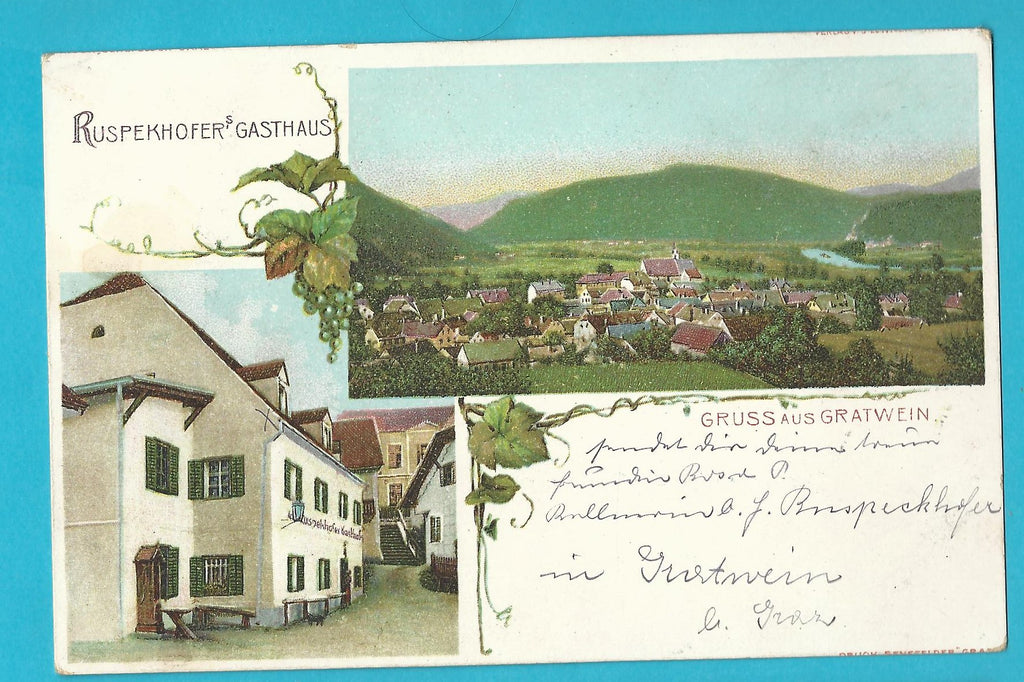 VERLAG V.
RUSPEKHOFER'S GASTHAUS
Ruspekhofer's Gasthaus
GRUSS AUS GRATWEIN.
sendet dir deine treue
freundin Rosa P.
Kellnerin b. H. Ruspeckhofer
in Gratwein
b. Graz.
DRUCK SENEFELDER GRAZ